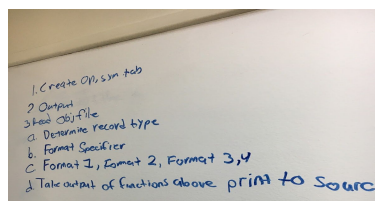 1. Create Op, sym tab
2 Output
3 Read Obj file
a. Determine record type
b. Format Specifier
c Format 1, Format 2, Format 3,4
d Take output of functions above print to sourc